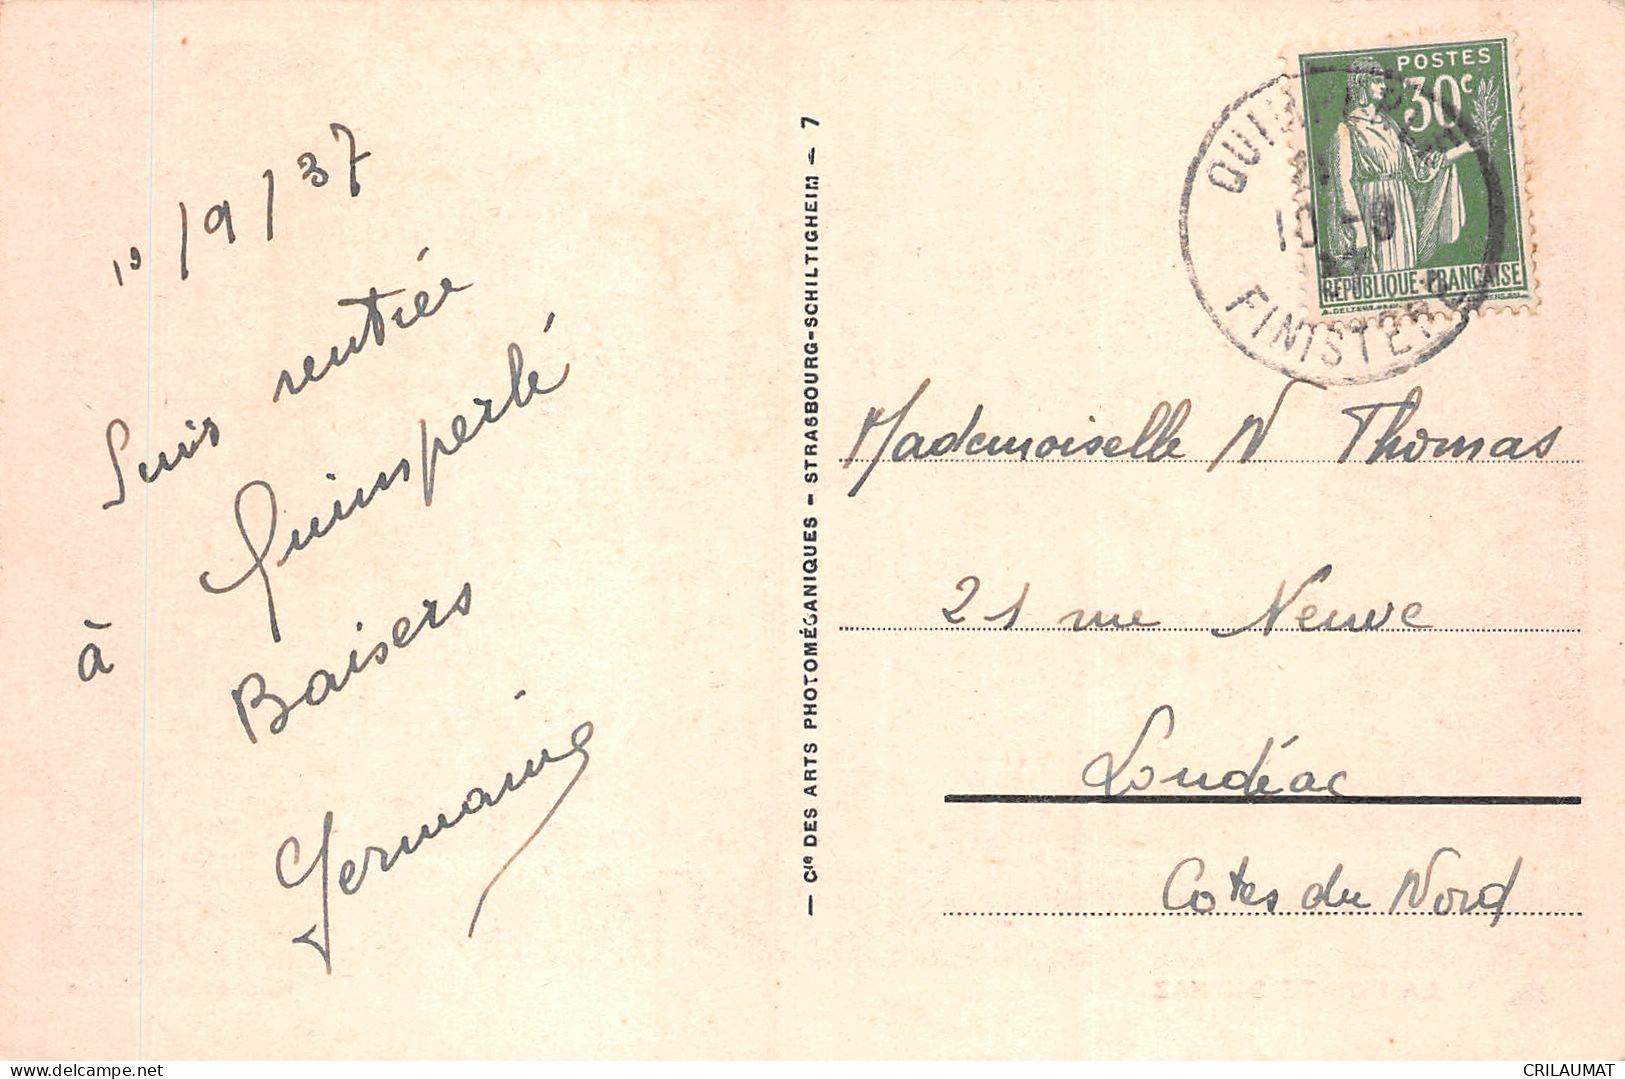 10/9/37
Suis rentrée
à Quimperlé
Baisers
Germaine
— Cie DES ARTS PHOTOMÉCANIQUES – STRASBOURG-SCHILTIGHEIM – 7
POSTES
30c
RÉPUBLIQUE-FRANÇAISE
10 -9
FINISTERE
Mademoiselle N Thomas
21 rue Neuve
Loudéac
Cotes du Nord
delcampe.net
CRILAUMAT